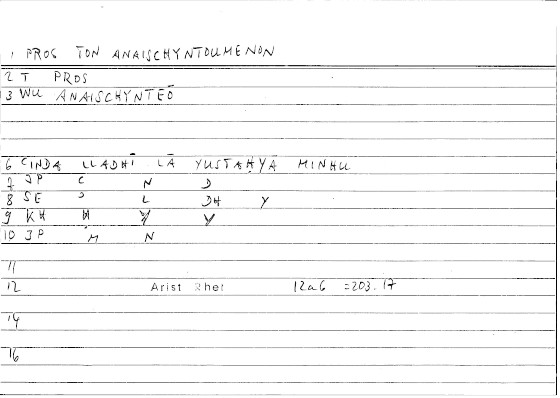 1 PROS TON ANAISCHYNTOUMENON
2 T PROS
3 WU ANAISCHYNTEŌ
6 CINDA LLADHĪ LĀ YUSTAḤYĀ MINHU
7 JP C N D
8 SE ɔ L DH Y
9 KH H Y Y
10 JP M N
11
12 Arist Rhet 12a6 =203.17
14
16